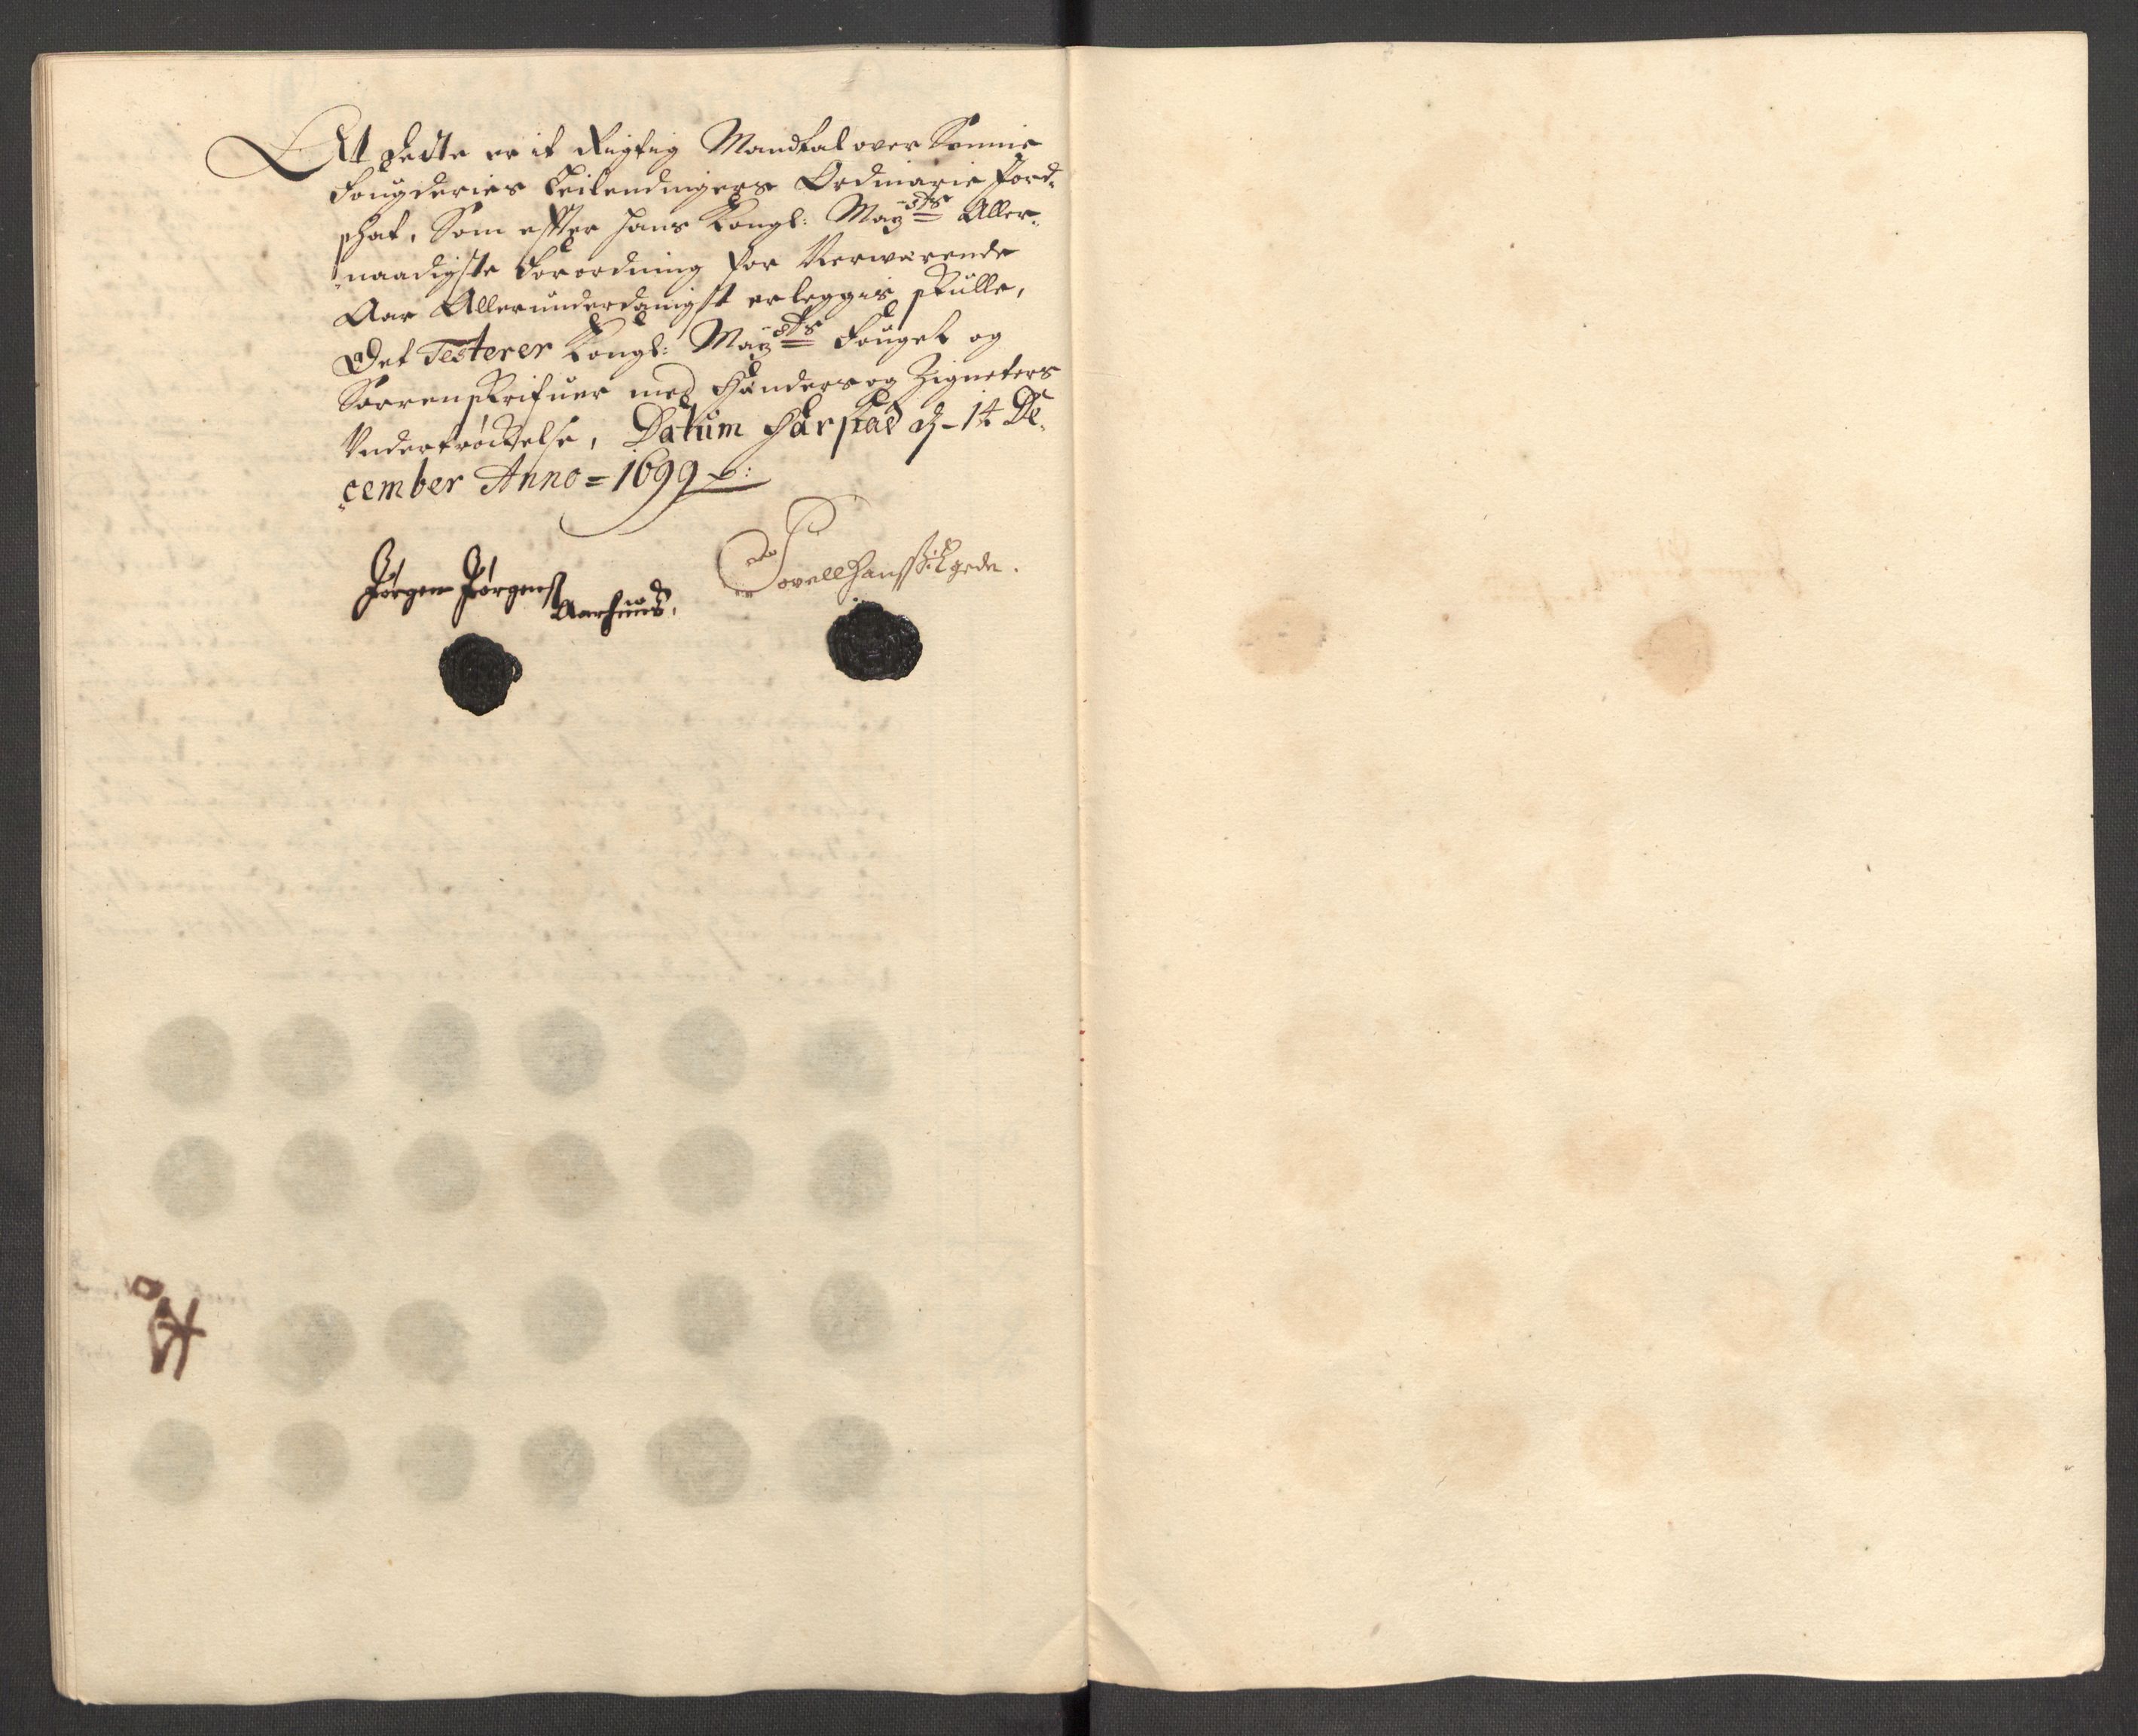 At dette er it Rigtig Mandtal over Sennie
Fougderies Leilendingers Ordinarie Jord-
schat, Som effter hans Kongl: Mayst:s Aller-
naadigste Forordning for Nerwærende
Aar Allerunderdanigst erleggis skulle,
Det Testerer Kongl: Mayst:s Fouget og
Sorrenskrifuer med Hænders og Zigneters
Vndertrøckelse, Datum Harstad d. 14 De-
cember Anno = 1699
Jørgen Jørgens
Aarhuus.
Povell Hanss